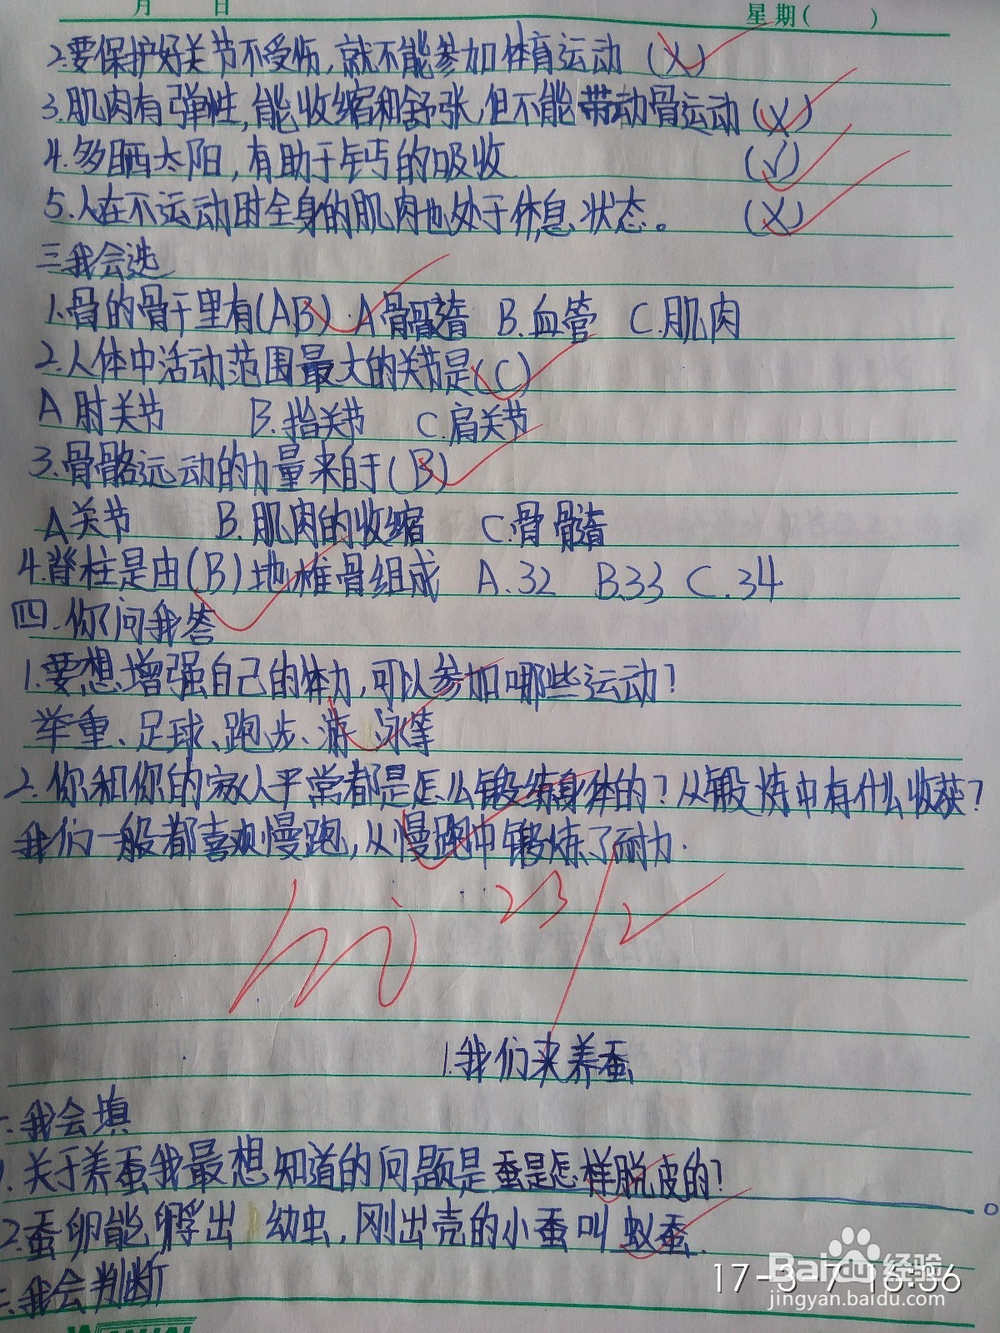 月 日 星期( )
2.要保护好关节不受伤,就不能参加体育运动 (X)
3.肌肉有弹性,能收缩和舒张,但不能带动骨运动(X)
4.多晒太阳,有助于钙的吸收 (√)
5.人在不运动时全身的肌肉也处于休息状态。 (X)
三我会选
1.骨的骨干里有(AB) A骨髓 B.血管 C.肌肉
2.人体中活动范围最大的关节是(C)
A肘关节 B.指关节 C.肩关节
3.骨骼运动的力量来自于(B)
A关节 B.肌肉的收缩 C.骨髓
4.脊柱是由(B)地椎骨组成 A.32 B.33 C.34
四.你问我答
1.要想增强自己的体力,可以参加哪些运动?
举重、足球、跑步、游泳等
2.你和你的家人平常都是怎么锻练身体的?从锻炼中有什么收获?
我们一般都喜观慢跑,从慢跑中锻炼了耐力.
23/2
1.我们来养蚕
一.我会填
1.关于养蚕我最想知道的问题是蚕是怎样脱皮的?。
2.蚕卵能孵出 幼虫,刚出壳的小蚕叫蚁蚕.
二.我会判断
Baidu经验
jingyan.baidu.com